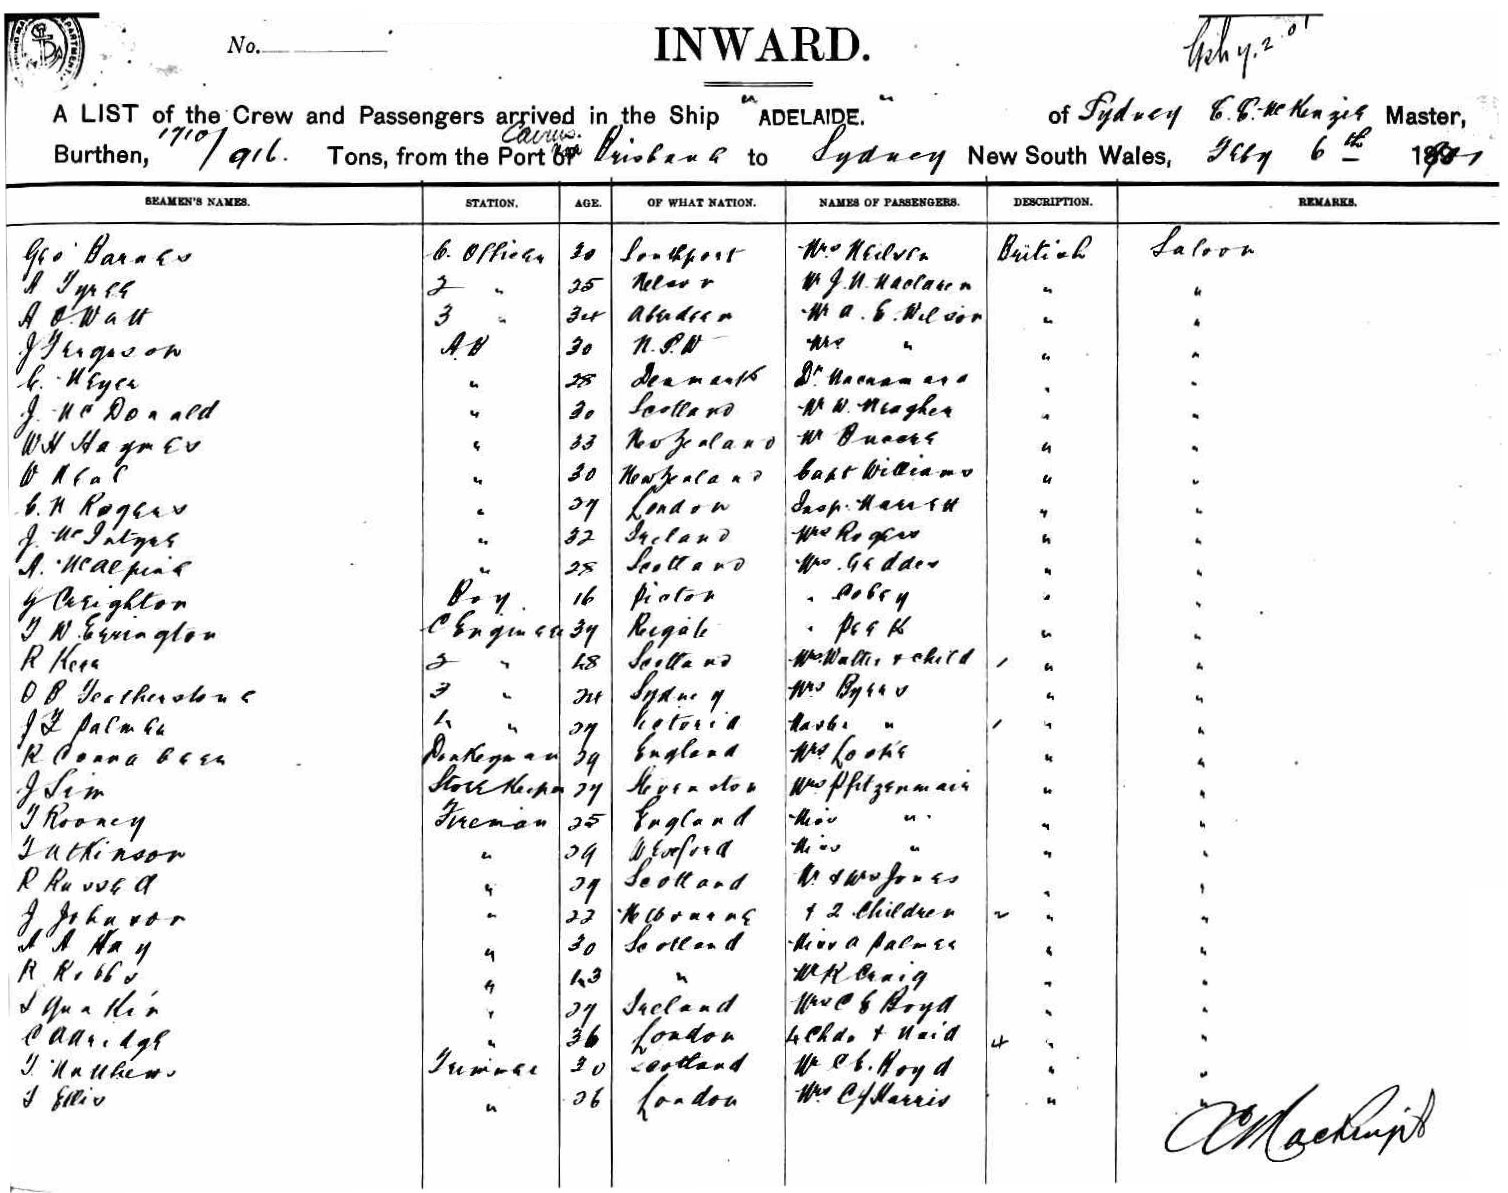 No.
INWARD.
A LIST of the Crew and Passengers arrived in the Ship "ADELAIDE." of Sydney C. C. McKenzie Master,
Cairns
Burthen, 1710/916. Tons, from the Port of Brisbane to Sydney New South Wales, Feby 6th 1901
SEAMEN'S NAMES. STATION. AGE. OF WHAT NATION. NAMES OF PASSENGERS. DESCRIPTION. REMARKS.
Geo Barnes C. Officer 30 Southport Mrs Neilsen British Saloon
A Tyree 2 " 25 Nelson Mr J. N. Maclaren " "
A O. Watt 3 " 34 Aberdeen Mr A. E. Wilson " "
J Ferguson A.B 30 N.S.W Mrs " " "
C. Meyer " 28 Denmark Dr Macnamara " "
J. McDonald " 30 Scotland Mr W. Meagher " "
W H Haynes " 33 New Zealand Mr " "
W Neal " 30 New Zealand Capt Williams " "
C. N Rogers " 27 London Insp. Marrett " "
J. McIntyre " 32 Ireland Mrs Rogers " "
A. McAlpine " 28 Scotland Mrs. Geddes " "
G Creighton Boy. 16 Picton " Cobey " "
T W. Errington C Engineer 37 Reigate " Peek " "
R Kerr 2 " 48 Scotland Mrs. Walter & child 1 " "
O B Featherstone 3 " 24 Sydney Mrs Byers " "
J F Palmer 4 " 27 Victoria Master " 1 " "
R Connabeer Donkeyman 29 England Mrs. Locke " "
J Sim Store Keeper 27 Stevenston Mrs Pfitzenmaier " "
T Rooney Fireman 25 England Miss " " "
T Atkinson " 29 Wexford Miss " " "
R Russell " 29 Scotland Mr & Mrs Jones " "
J Johnson " 22 Melbourne & 2 Children 2 " "
A A Hay " 30 Scotland Miss A Palmer " "
R Robbs " 43 " Mr K Craig " "
" 27 Ireland Mrs C E Boyd " "
C Aldridge " 36 London 4 Chdn & Maid 4 " "
T. Matthews Trimmer 30 Scotland Mr C E. Boyd " "
T Ellis " 26 London Mrs C J Harris " "
C C MacKenzie